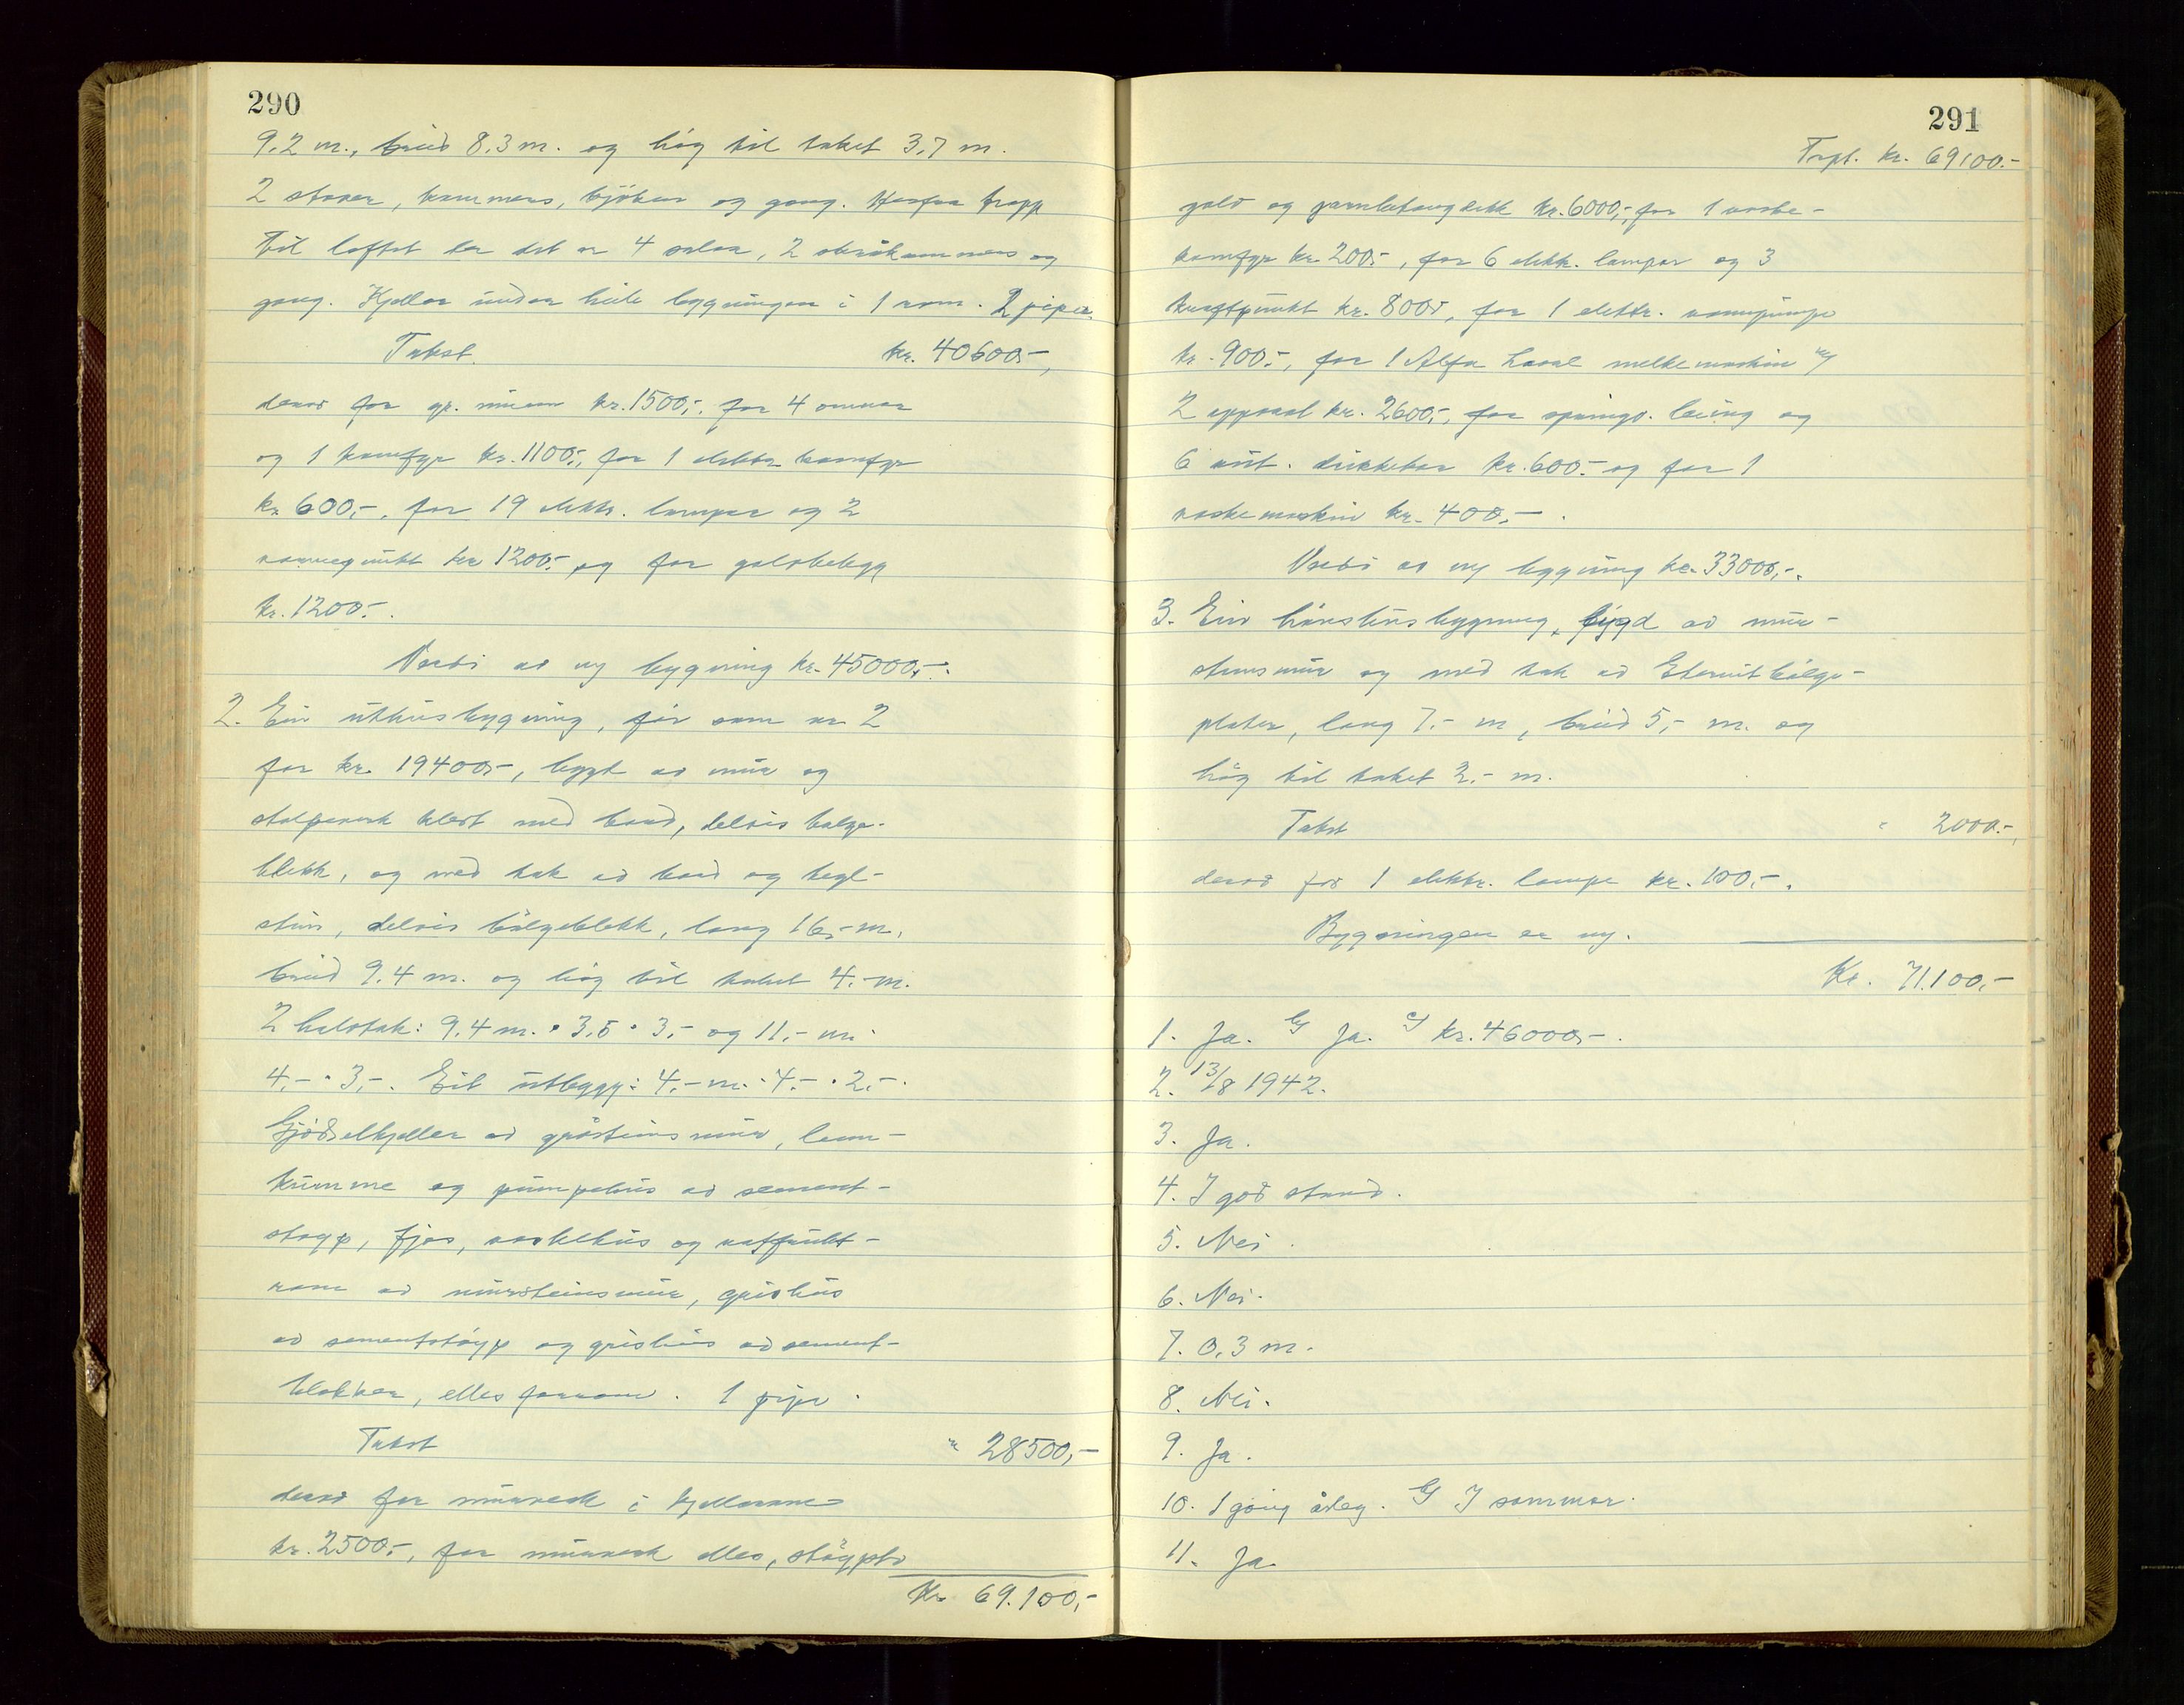 290
9.2 m., breid 8.3 m. og høg til taket 3,7 m.
2 stover, kammers, kjøken og gang. Herfra trapp
til loftet der det er 4 salar, 2 skråkammers og
gang. Kjellar under heile bygningen i 1 rom. 2 piper.
Takst. kr. 40600,-,
derav for gr. muren kr. 1500,-, for 4 omnar
og 1 komfyr kr. 1100,-, for 1 elektr. komfyr
kr. 600,-, for 19 elektr. lampar og 2
varmepunkt kr. 1200,- og for golvbelegg
kr. 1200,-.
Verdi av ny bygning kr. 45000,-.
2. Ein uthusbygning, før som nr. 2
for kr. 19400,-, bygt av mur og
stolpeverk kledt med bord, delvis bølge-
blekk, og med tak av bord og tegl-
stein, delvis bølgeblekk, lang 16,- m,
breid 9.4 m. og høg til taket 4,- m.
2 halvtak: 9.4 m. · 3,5 · 3,- og 11,- m.
4,- · 3,-. Eit utbygg: 4,- m. · 4,- · 2,-.
Gjødselkjellar av gråsteinsmur, land-
kumme og pumpehus av sement-
støyp, fjøs, vaskehus og
rom av mursteinsmur, grishus
av sementstøyp og grishus av sement-
blokker, elles forrom. 1 pipe.
Takst " 28500,-
derav for murverk i kjellarane
kr. 2500,-, for murverk elles, støypte
Kr. 69.100,-
291
Trpt. kr. 69100.-
golv og kr. 6000,-, for 1 vaske-
komfyr kr. 200,-, for 6 elektr. lampar og 3
kraftpunkt kr. 800,-, for 1 elektr. vannpumpe
kr. 900,-, for 1 Alfa Laval melkemaskin m/
2 apparat kr. 2600,-, for springv. leiing og
6 aut. drikkekar kr. 600,- og for 1
vaskemaskin kr. 400,-.
Verdi av ny bygning kr. 33000,-.
3. Ein hønsehusbygning, bygd av mur-
steinsmur og med tak av Eternitbølge-
plater, lang 7,- m, breid 5,- m. og
høg til taket 2,- m.
Takst " 2000.-,
derav for 1 elektr. lampe kr. 100,-.
Bygningen er ny.
Kr. 71.100,-
1. Ja. b/ Ja. c/ kr. 46000,-.
2. 13/8 1942.
3. Ja.
4. I god stand.
5. Nei.
6. Nei.
7. 0,3 m.
8. Nei.
9. Ja.
10. 1 gong årleg. b/ I sommar.
11. Ja.